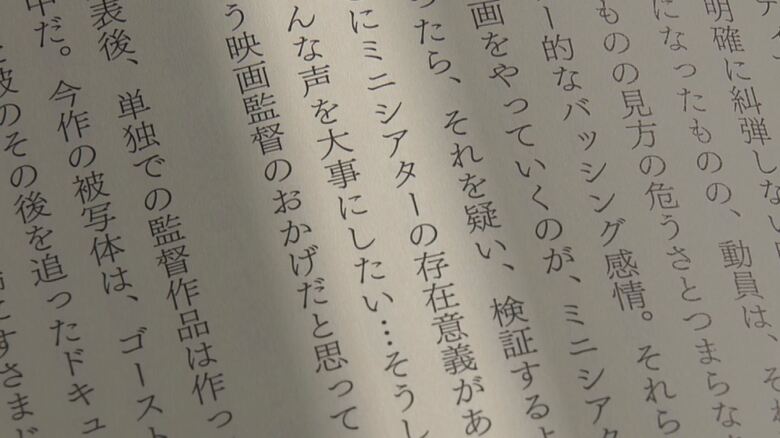 明確に糾弾しない
になったものの、動員は、そ
ものの見方の危うさとつまらな
ー的なバッシング感情。それら
画をやっていくのが、ミニシア
ったら、それを疑い、検証するよ
にミニシアターの存在意義があ
んな声を大事にしたい…そうし
う映画監督のおかげだと思って
表後、単独での監督作品は作っ
中だ。今作の被写体は、ゴースト
彼のその後を追ったドキュ